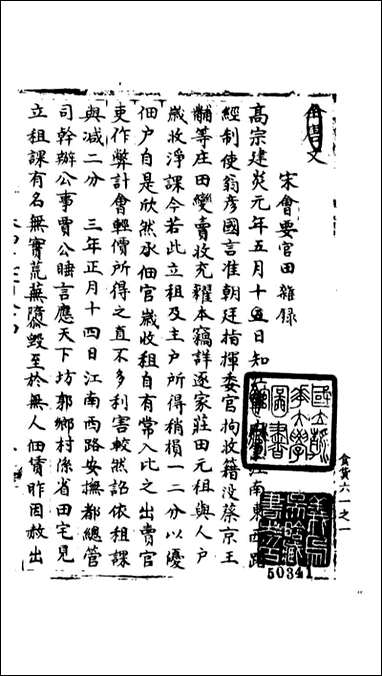 全唐文
宋會要官田雜錄
高宗建炎元年五月十五日知江南東西路
經制使翁彥國言准朝廷指揮委官拘收籍沒蔡京王
黼等庄田變賣收充糴本竊詳逐家莊田元租與人戶
嵗收淨課今若此立租及主戶所得稍損一二分以優
佃戶自是欣然承佃官嵗收租自有常入比之出賣官
吏作弊計會輕價所得之直不多利害較然詔依租課
與减二分　三年正月十四日江南西路安撫都總管
司幹辦公事賈公晔言應天下坊郭鄉村係省田宅見
立租課有名無實荒蕪隳毀至於無人佃賃昨因赦出
食貨六一之一
國立
華大學
圖書
50341